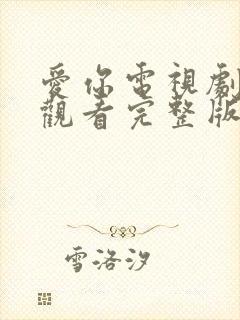 愛你電視劇
觀看完整版
雪洛汐